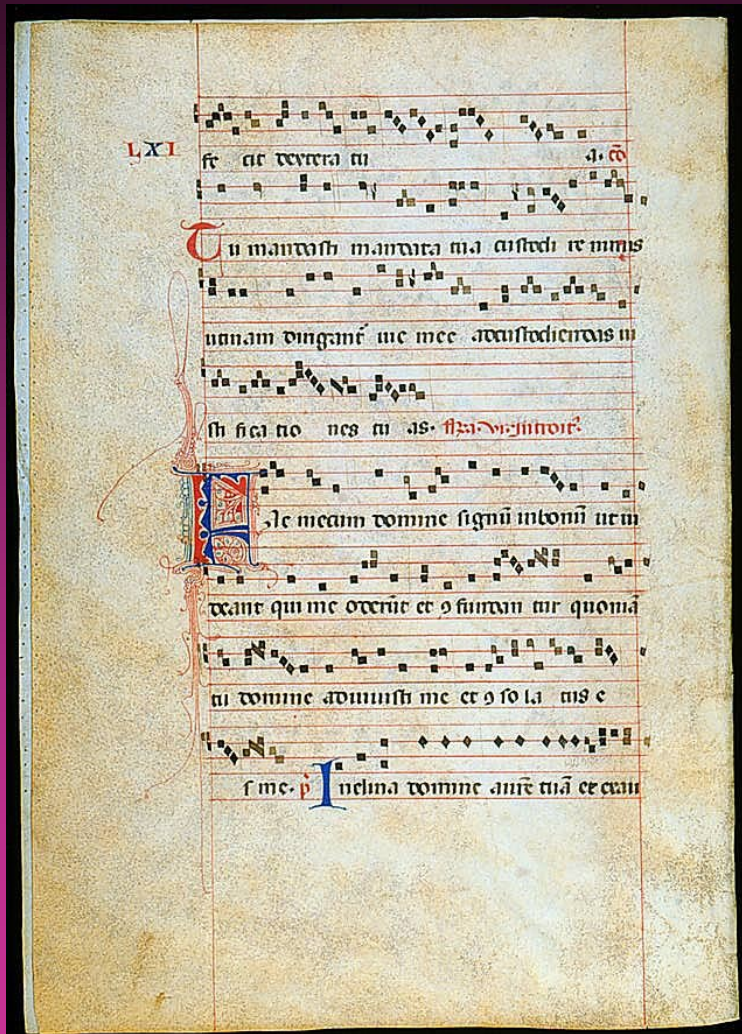 LXI
fe cit dextera tu a. cō
Tu mandasti mandata tua custodi re nimis
utinam dirigant᷑ uie mee adcustodiendas iu
sti fica tio nes tu as. introit᷑.
FAc mecum domine signū inbonū ut ui
deant qui me oderūt et ꝯ fundan tur quoniā
tu domine adiuuisti me et ꝯ so la tus e
s me. p̄ Inclina domine aurē tuā et exau